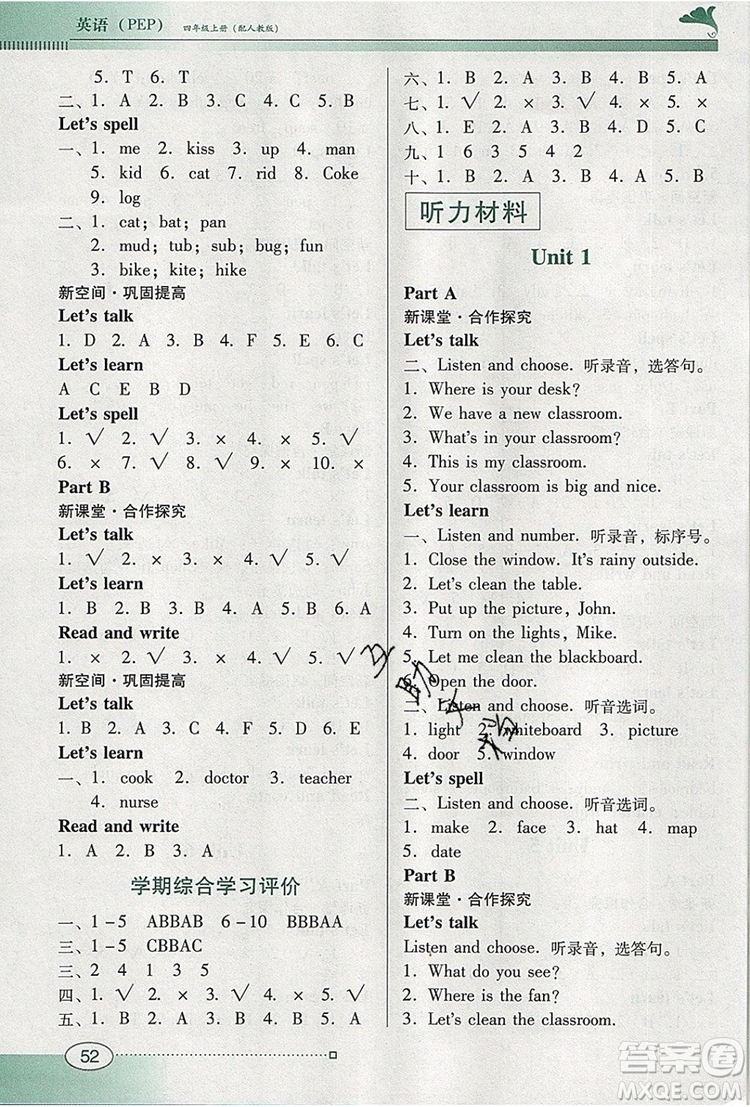 英语（PEP） 四年级上册（配人教版）
5. T 6. T
二、1. A 2. B 3. C 4. C 5. B
Let's spell
一、1. me 2. kiss 3. up 4. man
5. kid 6. cat 7. rid 8. Coke
9. log
二、1. cat; bat; pan
2. mud; tub; sub; bug; fun
3. bike; kite; hike
新空间·巩固提高
Let's talk
1. D 2. A 3. B 4. F 5. E 6. C
Let's learn
A C E B D
Let's spell
1. √ 2. √ 3. × 4. × 5. √
6. × 7. × 8. √ 9. × 10. ×
Part B
新课堂·合作探究
Let's talk
1. √ 2. × 3. × 4. √ 5. √
Let's learn
1. B 2. B 3. A 4. A 5. B 6. A
Read and write
1. × 2. √ 3. √ 4. × 5. √
新空间·巩固提高
Let's talk
1. B 2. D 3. A 4. E 5. C
Let's learn
一、1. cook 2. doctor 3. teacher
4. nurse
Read and write
1. A 2. B 3. A 4. A 5. B
学期综合学习评价
一、1-5 ABBAB 6-10 BBBAA
二、1-5 CBBAC
三、2 4 1 3 5
四、1. √ 2. × 3. × 4. √ 5. √
五、1. B 2. A 3. A 4. B 5. B
52
六、1. B 2. A 3. B 4. B 5. A
七、1. √ 2. × 3. √ 4. × 5. ×
八、1. E 2. A 3. B 4. D 5. C
九、1 6 3 5 4 2
十、1. B 2. B 3. A 4. A 5. B
听力材料
Unit 1
Part A
新课堂·合作探究
Let's talk
二、Listen and choose. 听录音，选答句。
1. Where is your desk?
2. We have a new classroom.
3. What's in your classroom?
4. This is my classroom.
5. Your classroom is big and nice.
Let's learn
一、Listen and number. 听录音，标序号。
1. Close the window. It's rainy outside.
2. Let's clean the table.
3. Put up the picture, John.
4. Turn on the lights, Mike.
5. Let me clean the blackboard.
6. Open the door.
二、Listen and choose. 听音选词。
1. light 2. whiteboard 3. picture
4. door 5. window
Let's spell
二、Listen and choose. 听音选词。
1. make 2. face 3. hat 4. map
5. date
Part B
新课堂·合作探究
Let's talk
Listen and choose. 听录音，选答句。
1. What do you see?
2. Where is the fan?
3. Let's clean the classroom.
答案圈
MXQE.COM